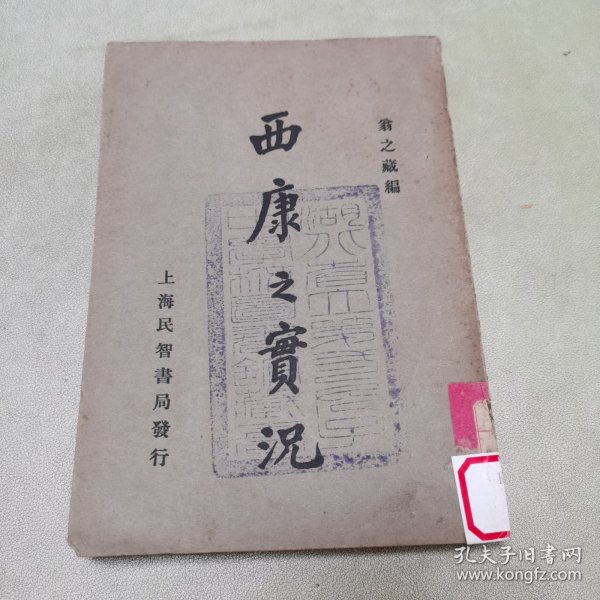 翁之藏編
西康之實況
上海民智書局發行
孔夫子旧书网
www.kongfz.com